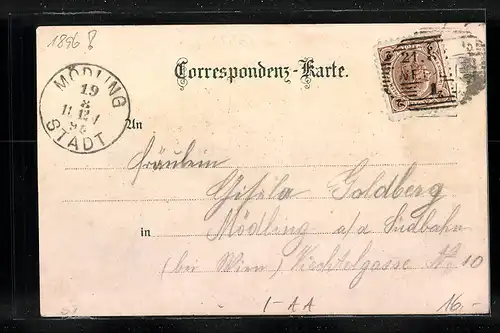 1896 ?
MÖDLING
19
8
11-12 V
96
STADT
Correspondenz-Karte.
21
1
2
2
An
Fräulein
Gisela Goldberg
in Mödling a/d Südbahn
(bei Wien) Viechtelgasse No 10
I-AA
16.-